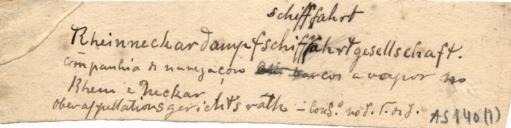 schifffahrt
Rheinneckardampfschifffahrtgesellschaft.
companhia de navegaçoso barcos a vapor no
Rheim e Neckar
oberappellationsgerichtsrath – Cons.º no
AS140(1)